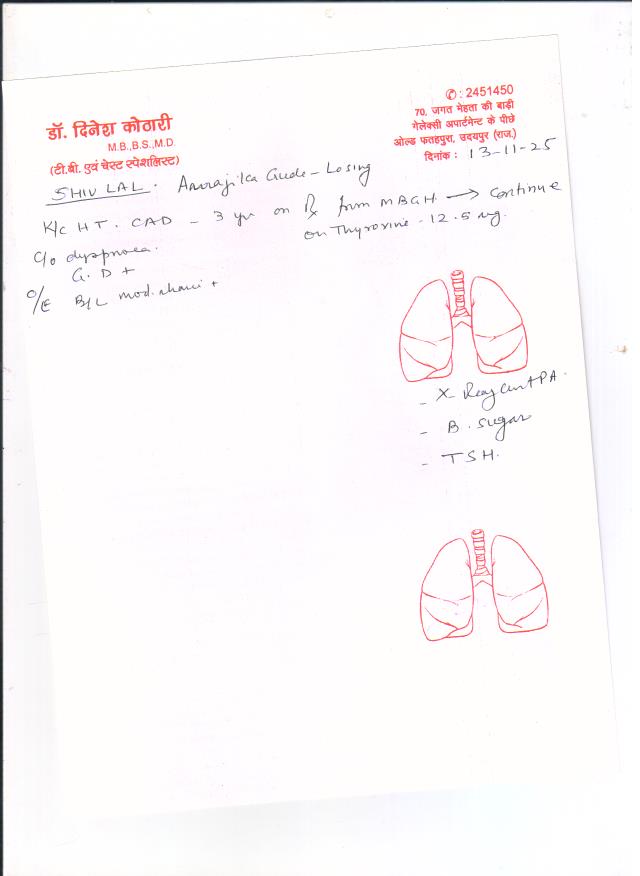 ✆ : 2451450
डॉ. दिनेश कोठारी
M.B.,B.S.,M.D.
(टी.बी. एवं चेस्ट स्पेशलिस्ट)
70, जगत मेहता की बाड़ी
गेलेक्सी अपार्टमेन्ट के पीछे
ओल्ड फतहपुरा, उदयपुर (राज.)
दिनांक : 13-11-25
SHIV LAL. Losing
K/c HT. CAD - 3 yr on Rx from MBGH → continue
on Thyroxine - 12.5 mg.
C/o dyspnoea.
G. D +
O/E B/L mod. +
- X Ray PA.
- B. Sugar
- TSH.